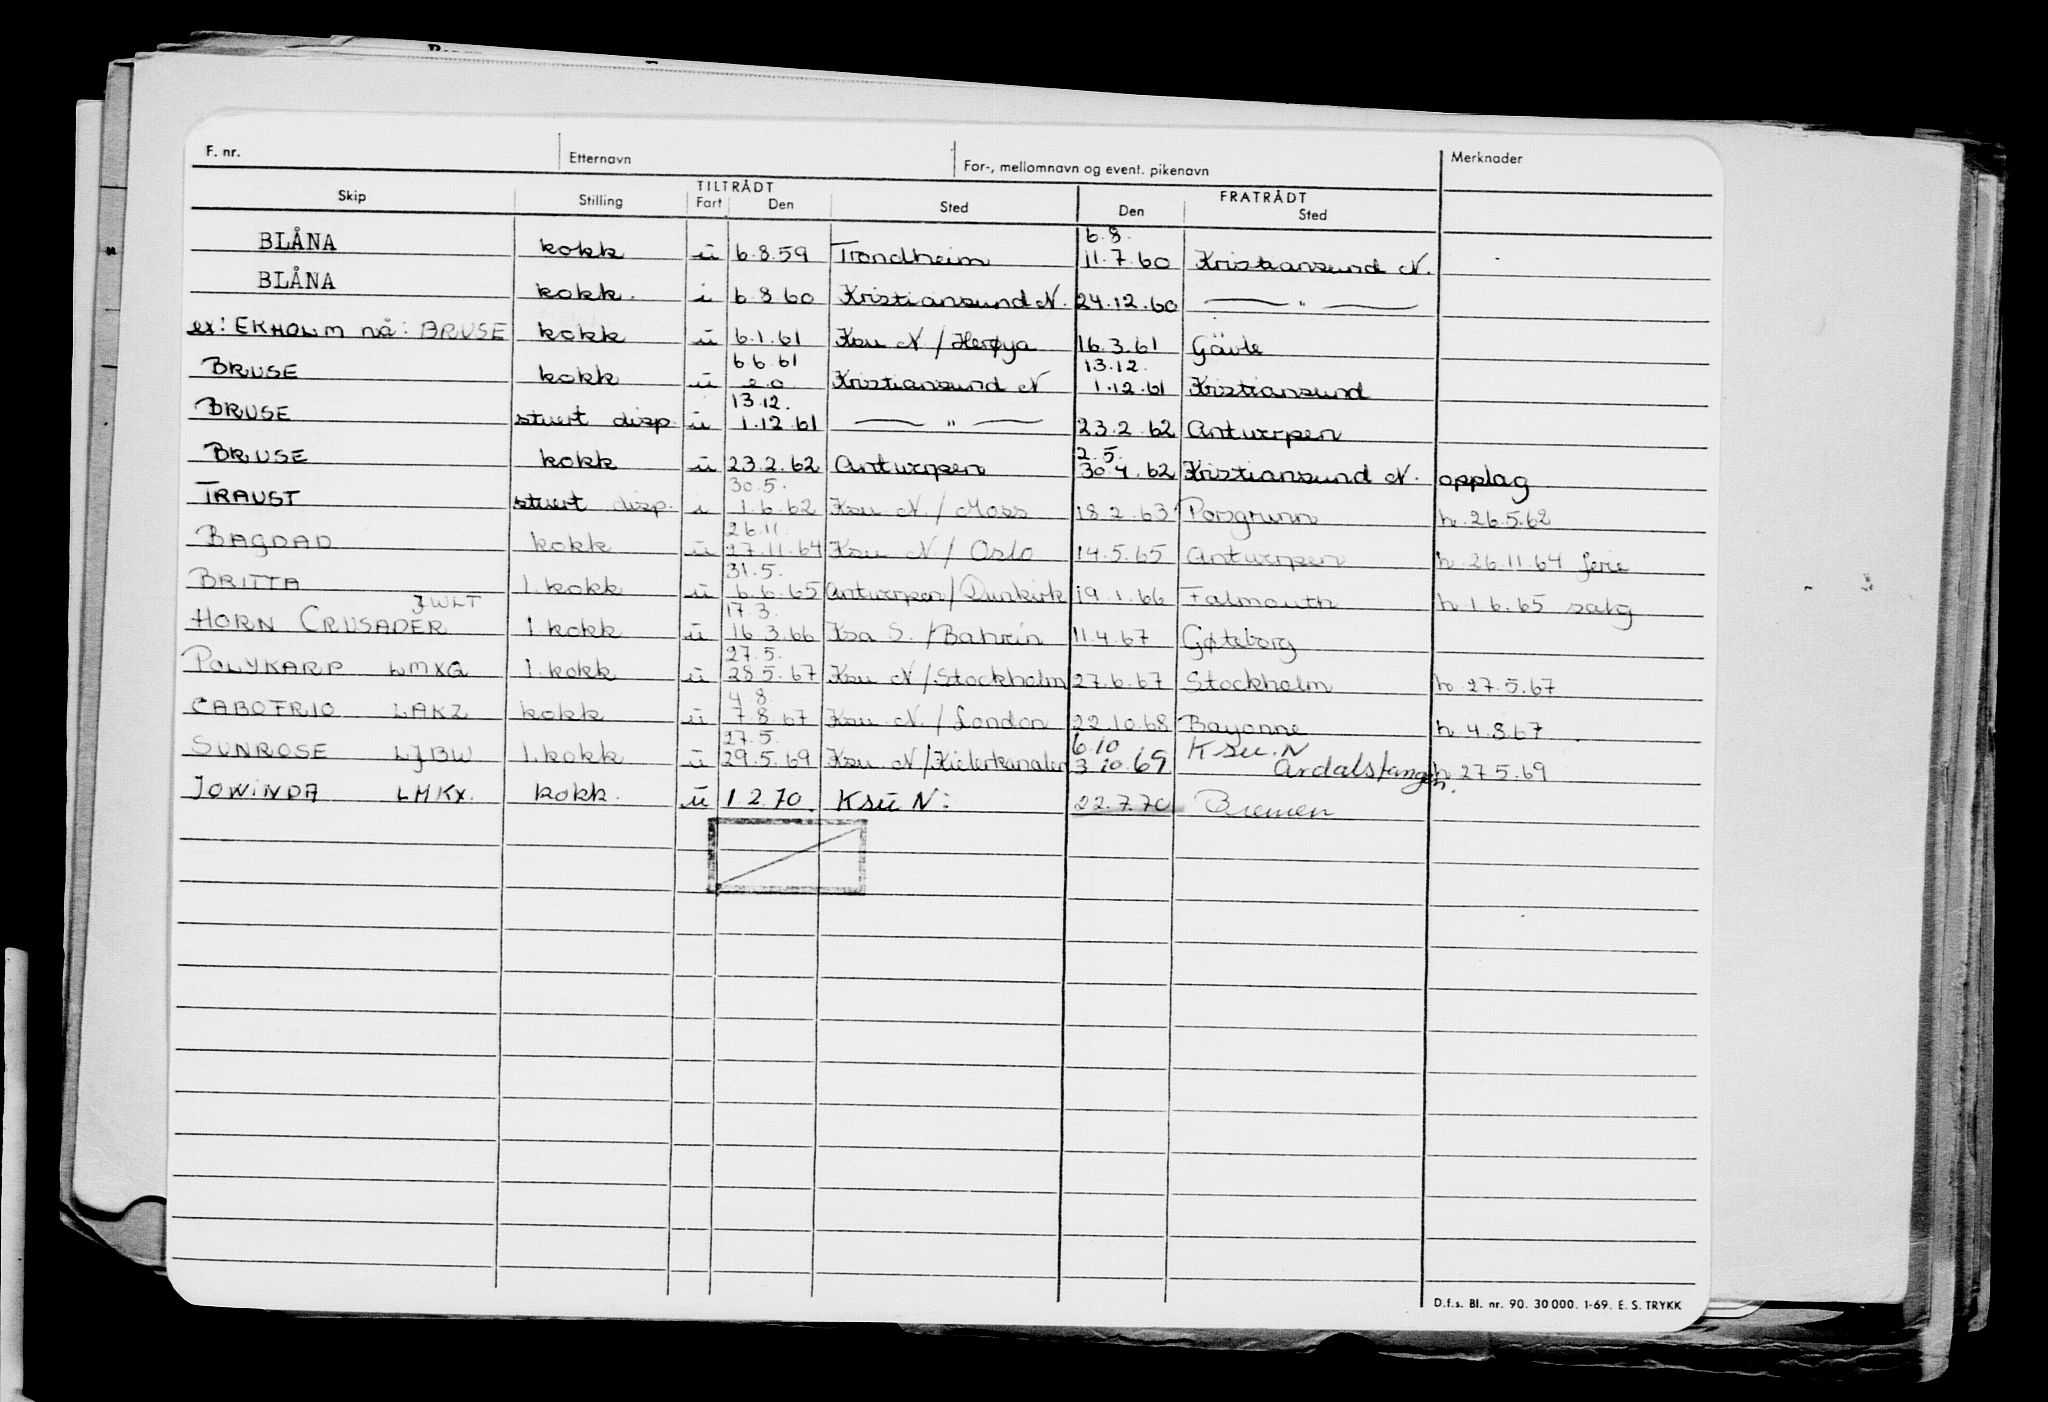 F. nr. Etternavn For-, mellomnavn og event. pikenavn Merknader
TILTRÅDT FRATRÅDT
Skip Stilling Fart Den Sted Den Sted
6.8.
BLÅNA kokk u 6.8.59 Trondheim 11.7.60 Kristiansund N.
BLÅNA kokk. i 6 8 60 Kristiansund N. 24.12.60 — " —
ex: EKHOLM nå: BRUSE kokk u 6.1.61 Ksu N / Herøya 16.3.61 Gävle
6.6.61 13.12.
BRUSE kokk u e.o Kristiansund N 1.12.61 Kristiansund
13.12.
BRUSE stuert disp. u 1.12 61 — " — 23.2 62 Antwerpen
2.5.
BRUSE kokk u 23.2.62 Antwerpen 30.4.62 Kristiansund N. opplag
30.5.
TRAUST stuert disp. i 1.6.62 Ksu N. / Moss 18.2.63 Porsgrunn h. 26.5.62
26.11.
BAGDAD kokk u 27.11.64 Ksu N / Oslo 14.5.65 Antwerpen h. 26.11 64 ferie
31.5.
BRITTA 1. kokk u 6.6.65 Antwerpen / Dunkirk 19.1.66 Falmouth h 1.6.65 salg
JWLT 17.3.
HORN CRUSADER 1 kokk u 16 3.66 Ksa S. / Bahrin 11.4.67 Gøteborg
27.5.
POLYKARP LMXQ 1. kokk u 28 5.67 Ksu N /. Stockholm 27.6.67 Stockholm h 27.5.67
4 8.
CABOFRIO LAKZ kokk u 7.8.67 Ksu N. / London 22.10.68 Bayonne h 4.8.67
27.5. 6.10 Ksu. N
SUNROSE LJBW 1. kokk u 29.5.69 Ksu N / Kielerkanalen 3 10.69 Årdalstangen. h 27.5.69
JOWINDA LMKX. kokk. u 1 2.70. Ksu N: 22.7.70 Bremen
D.f.s. Bl. nr. 90. 30 000. 1-69. E. S. TRYKK